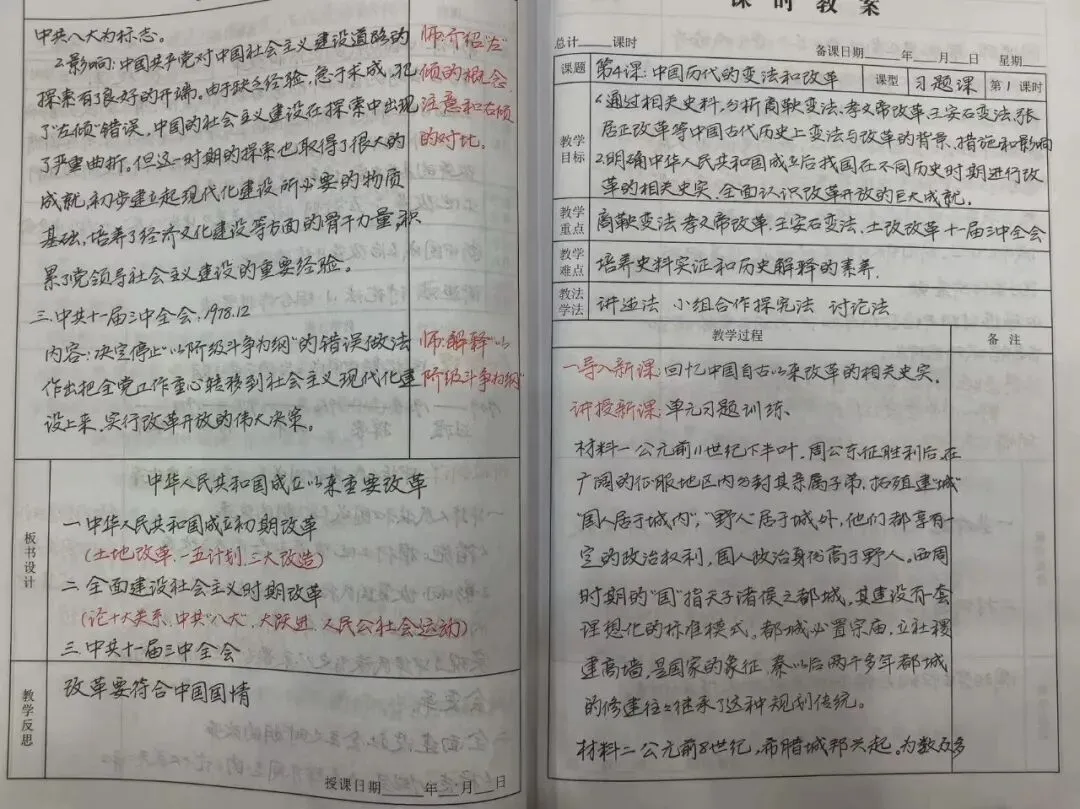 中共八大为标志。
2.影响:中国共产党对中国社会主义建设道路的
探索有了良好的开端。由于缺乏经验,急于求成,犯
了"左倾"错误,中国的社会主义建设在探索中出现
了严重曲折。但这一时期的探索也取得了很大的
成就,初步建立起现代化建设所必要的物质
基础,培养了经济文化建设等方面的骨干力量,积
累了党领导社会主义建设的重要经验。
三.中共十一届三中全会:1978.12
内容:决定停止"以阶级斗争为纲"的错误做法
作出把全党工作重心转移到社会主义现代化建
设上来,实行改革开放的伟大决策。
师:介绍"左"
倾的概念,
注意和右倾
的对比。
师:解释"以
阶级斗争为纲"
板书设计
中华人民共和国成立以来重要改革
一.中华人民共和国成立初期改革
(土地改革.一五计划.三大改造)
二.全面建设社会主义时期改革
(论十大关系.中共"八大".大跃进.人民公社会运动)
三.中共十一届三中全会
教学反思
改革要符合中国国情
授课日期____年__月__日
课时教案
总计____课时
备课日期____年__月__日 星期__
课题 第4课:中国历代的变法和改革 课型 习题课 第1课时
教学目标
1.通过相关史料,分析商鞅变法、孝文帝改革、王安石变法、张
居正改革等中国古代历史上变法与改革的背景、措施和影响
2.明确中华人民共和国成立后我国在不同历史时期进行改
革的相关史实,全面认识改革开放的巨大成就。
教学重点 商鞅变法.孝文帝改革.王安石变法、土改改革 十一届三中全会
教学难点 培养史料实证和历史解释的素养.
教法学法 讲述法 小组合作探究法 讨论法
教学过程 备注
一.导入新课:回忆中国自古以来改革的相关史实.
讲授新课:单元习题训练、
材料一 公元前11世纪下半叶,周公东征胜利后,在
广阔的征服地区内分封其亲属子弟,拓殖建"城"
"国人居于城内","野人"居于城外,他们都享有一
定的政治权利,国人政治身份高于野人。西周
时期的"国"指天子诸侯之都城,其建设有一套
理想化的标准模式。都城必置宗庙,立社稷
建高墙,是国家的象征,秦以后两千多年都城
的修建往往继承了这种规划传统。
材料二 公元前8世纪,希腊城邦兴起。为数众多